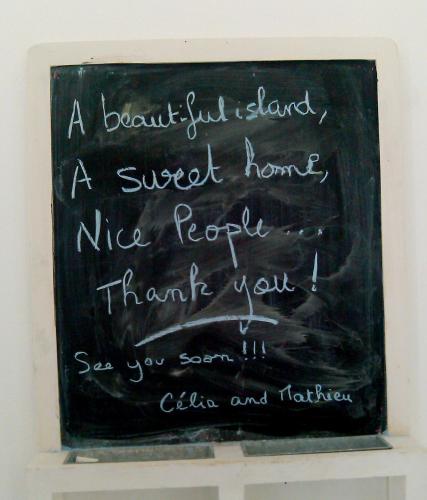 A beautiful island,
A sweet home,
Nice People ...
Thank you !
See you soon !!!
Célia and Mathieu